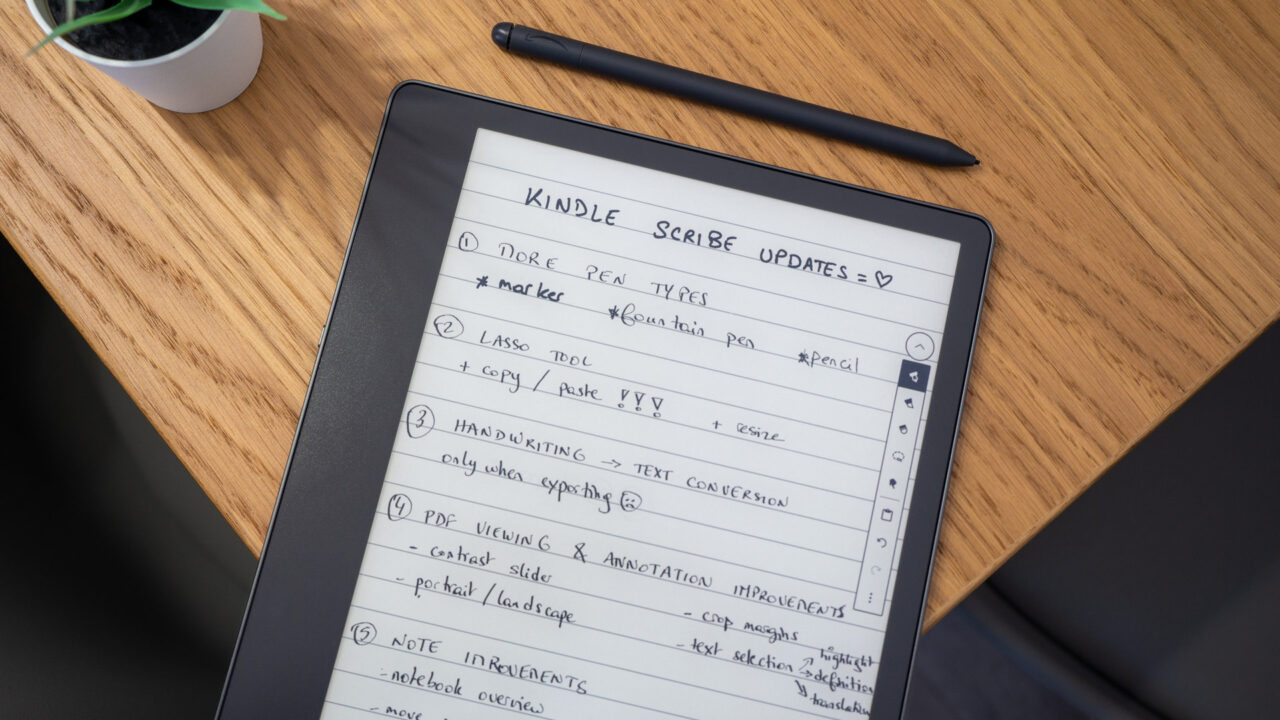 KINDLE SCRIBE UPDATES = ♡
① MORE PEN TYPES
* marker *fountain pen *pencil
② LASSO TOOL
+ copy / paste !!! + resize
③ HANDWRITING → TEXT CONVERSION
only when exporting ☹
④ PDF VIEWING & ANNOTATION IMPROVEMENTS
- contrast slider
- portrait / landscape
- crop margins
- text selection → highlight
→ definition
→ translation
⑤ NOTE IMPROVEMENTS
- notebook overview
- move